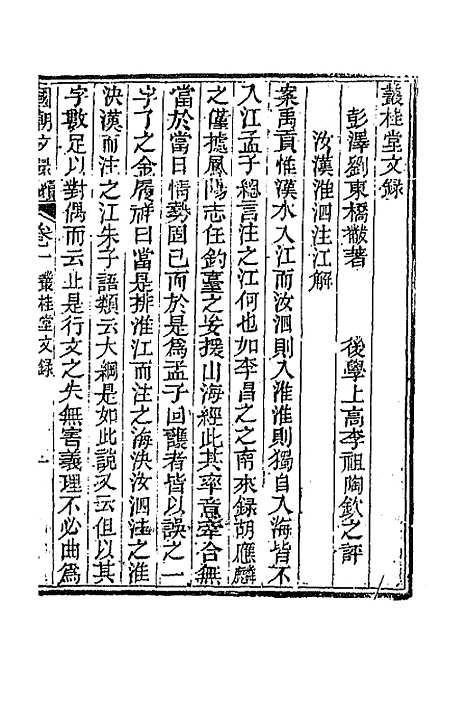 叢桂堂文録
彭澤劉東橋黻著　後學上高李祖陶欽之評
汝漢淮泗注江解
案禹貢惟漢水入江而汝泗則入淮淮則獨自入海皆不
入江孟子總言注之江何也如李昌之之南來録胡應麟
之僅據鳳陽志任釣臺之妄援山海經此其率意牽合無
當於當日情勢固已而於是爲孟子回護者皆以誤之一
字了之金履祥曰當是排淮江而注之海泱汝泗注之淮
決漢而注之江朱子語類云大綱是如此說又云但以其
字數足以對偶而云此是行文之失無害義理不必曲爲
國朝文録續　卷一　叢桂堂文録　一